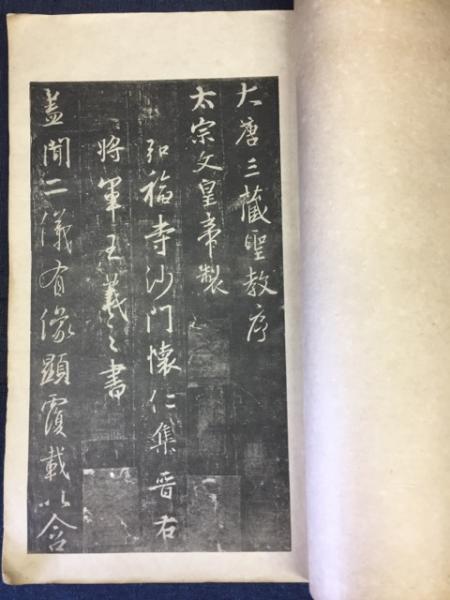 大唐三藏聖教序
太宗文皇帝製
弘福寺沙門懷仁集晉右
將軍王羲之書
蓋聞二儀有像顯覆載以含